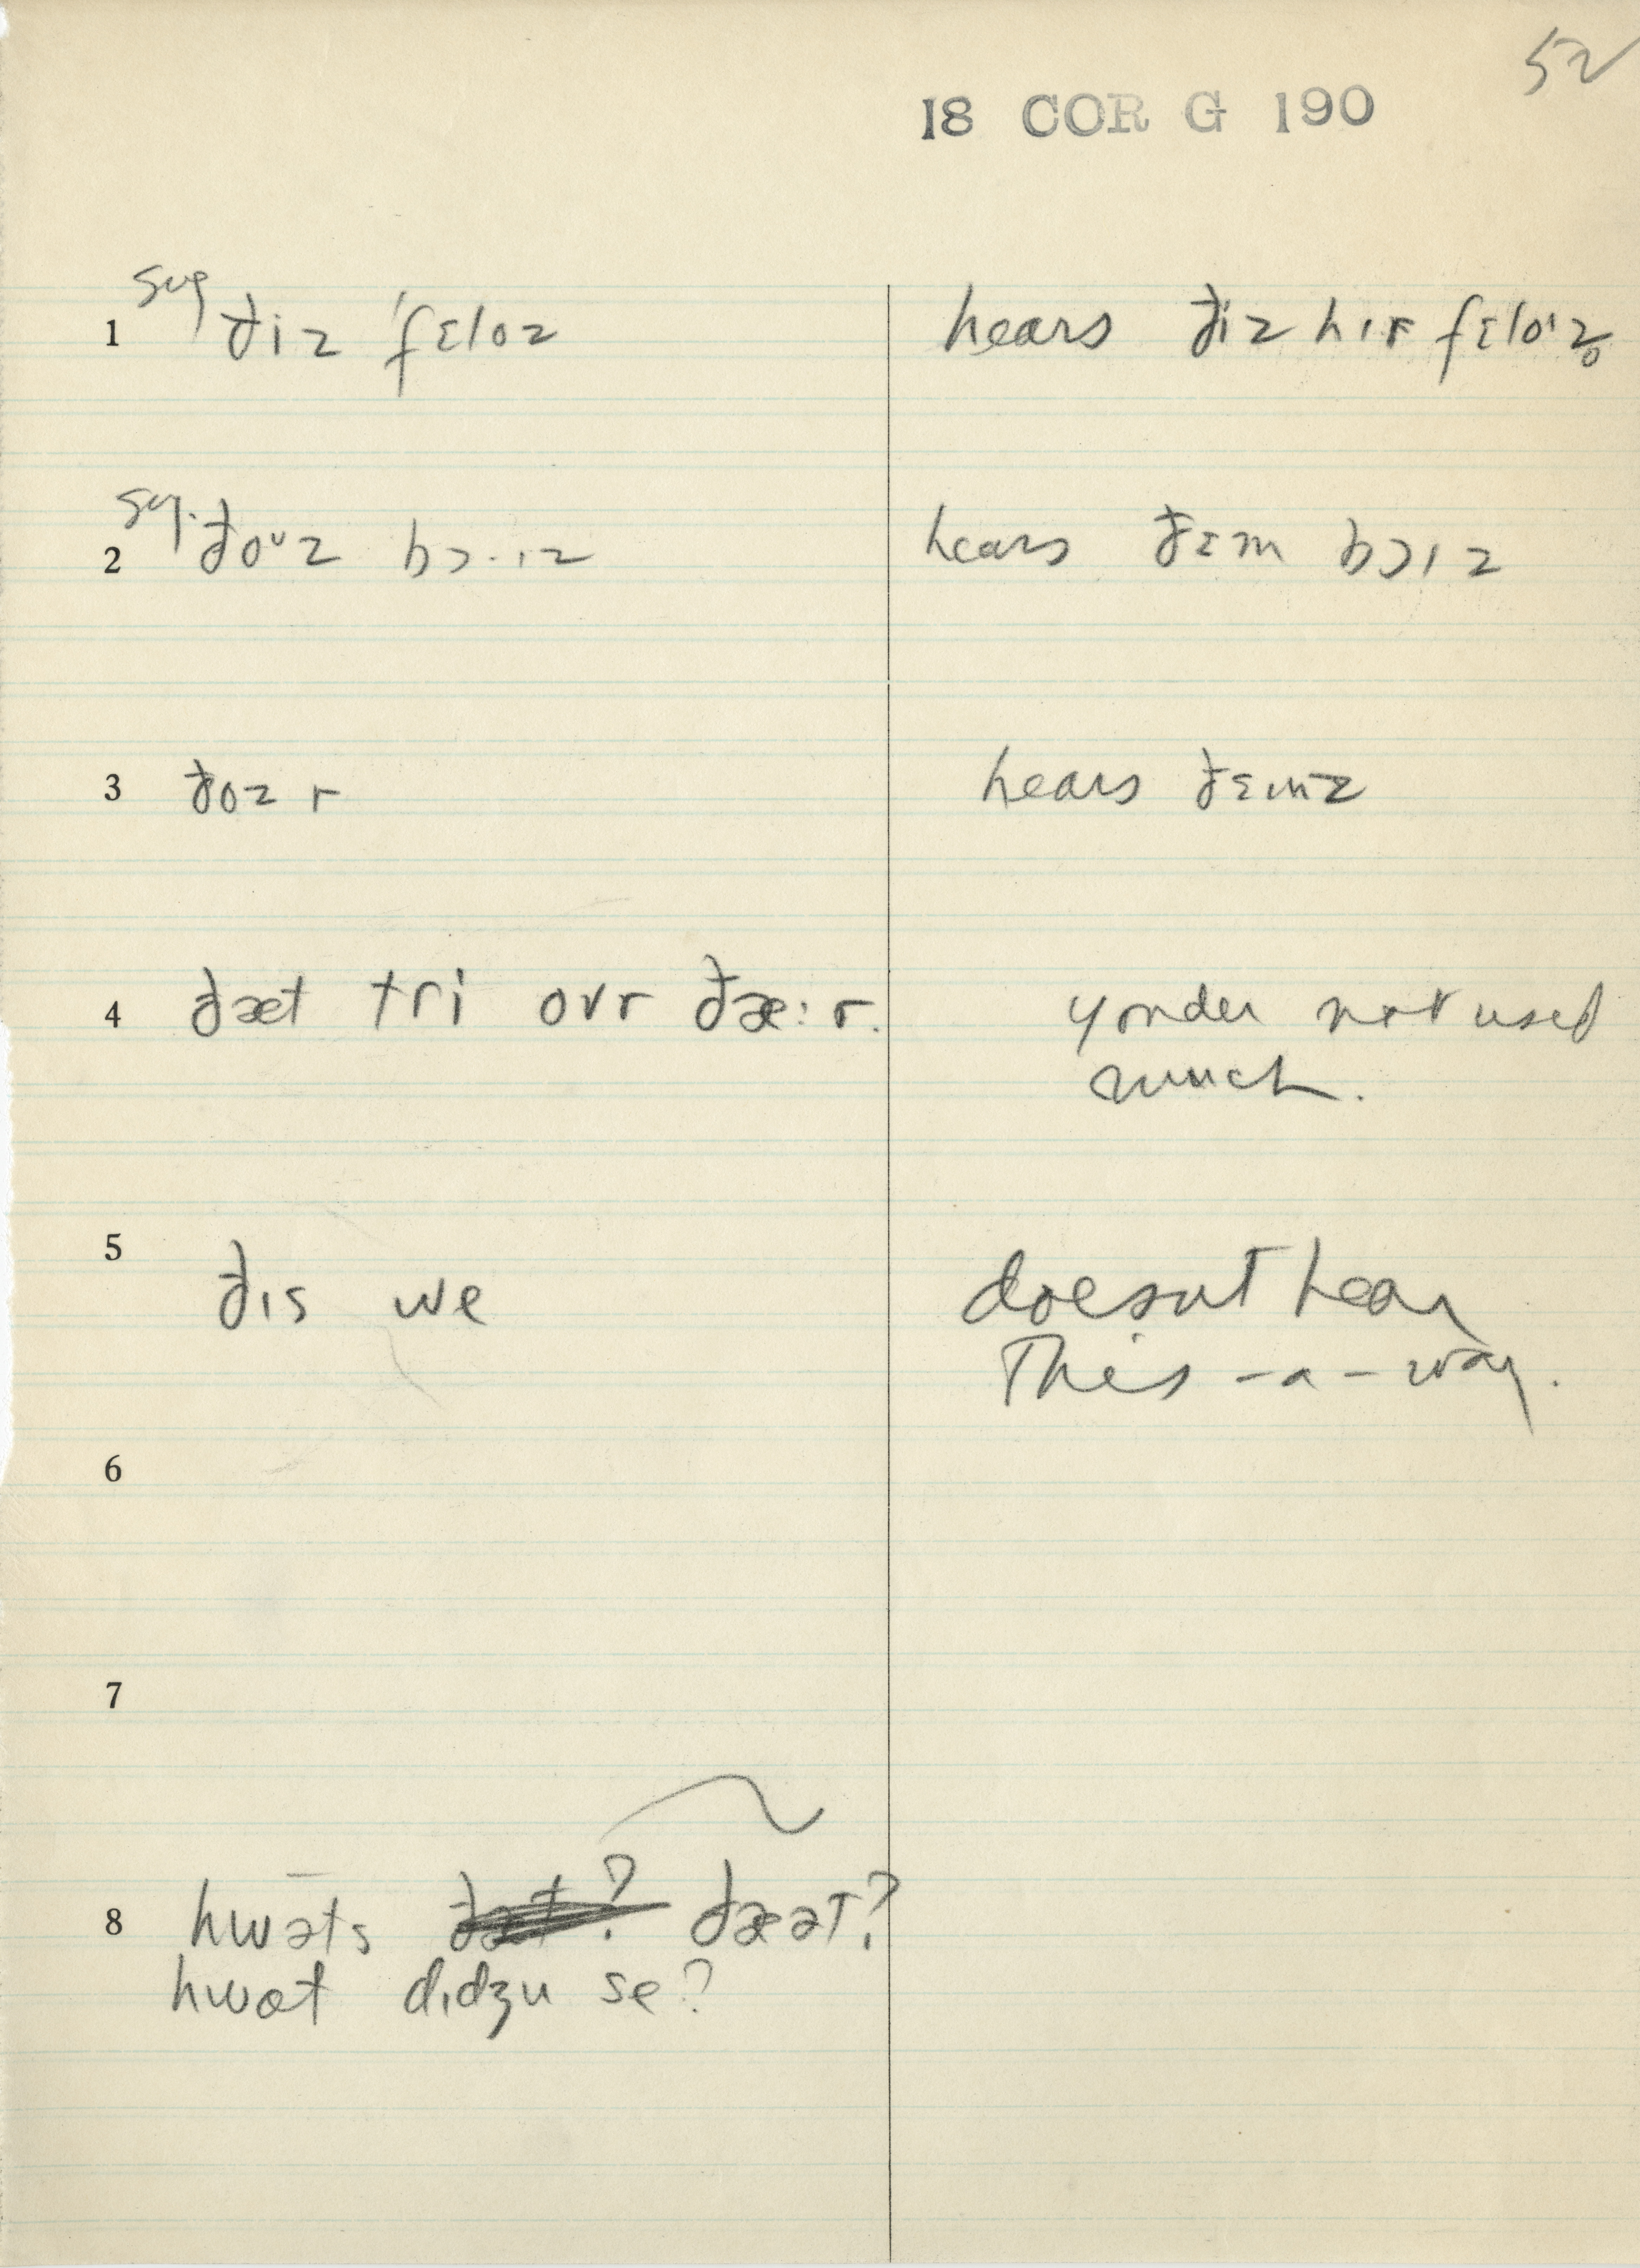 52
18 COR G 190
1 sug ðiz ˈfɛloz hears ðiz hɪr fɛloˈz̥
2 sug. ðoᶷz bɔ·ɪz hears ðɛm bɔɪz
3 ðoz r hears ðɛmz
4 ðæt tri ovr ðæ:r. yonder not used
much.
5 ðɪs we doesnt hear
This-a-way.
6
7
8 hwəts ðæt? ðæət?
hwət dɪdʒu se?